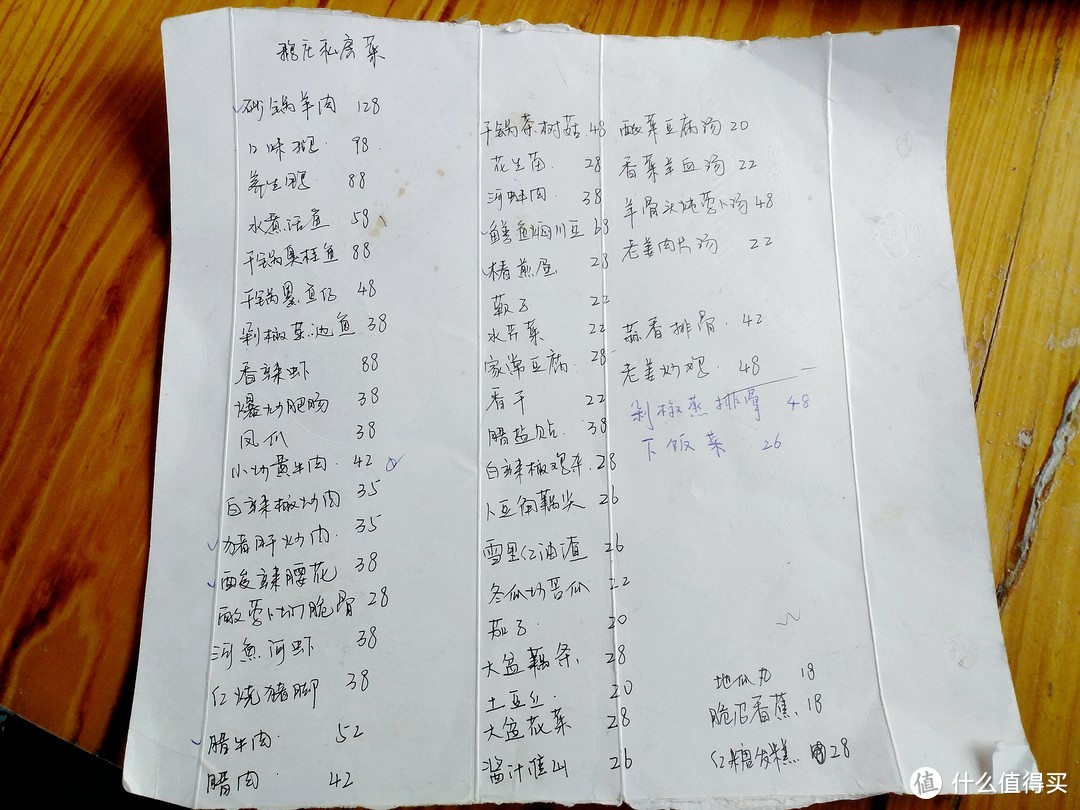 私房菜
砂锅羊肉 128
口味 98
养生 88
水煮活鱼 58
干锅臭桂鱼 88
干锅 鱼仔 48
剁椒 鱼 38
香辣虾 88
爆炒肥肠 38
凤爪 38
小炒黄牛肉 42
白辣椒炒肉 35
猪肝炒肉 35
酸辣腰花 38
酸萝卜 脆骨 28
河鱼河虾 38
红烧猪脚 38
腊牛肉 52
腊肉 42
干锅茶树菇 48
花生苗 28
河蚌肉 38
鳝鱼焖川豆 68
椿煎蛋 28
蕨子 22
水芹菜 22
家常豆腐 28
香干 22
腊盐 38
白辣椒鸡杂 28
卜豆角藕尖 26
雪里红油渣 26
冬瓜炒苦瓜 22
茄子 20
大盆藕条 28
土豆丝 20
大盆花菜 28
酱汁淮山 26
酸菜豆腐汤 20
香菜羊血汤 22
羊骨头炖萝卜汤 48
老姜肉片汤 22
蒜香排骨 42
老姜炒鸡 48
剁椒蒸排骨 48
下饭菜 26
地瓜丸 18
脆皮香蕉 18
红糖发糕 28
值 什么值得买